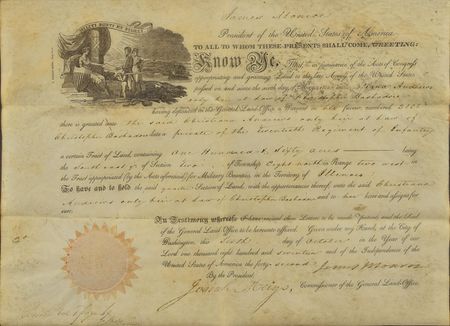 James Monroe
President of the United States of America
TO ALL TO WHOM THESE PRESENTS SHALL COME, GREETING:
Know Ye, That, in pursuance of the Acts of Congress
appropriating and granting Land to the late Army of the United States
passed on and since the sixth day of
only heir at law of Christopher
having deposited in the General Land Office a Warrant in favor, numbered
there is granted unto the said Christiana Andrews only heir at law of
Christopher late a private of the Twentieth Regiment of Infantry
a certain Tract of Land, containing One Hundred & Sixty acres being
the South east quarter of Section two of Township Eight north in Range two west in
the Tract appropriated (by the Acts aforesaid) for Military Bounties in the Territory of Illinois:
To have and to hold the said quarter Section of Land, with the appurtenances thereof, unto the said Christiana
Andrews only heir at law of Christopher and to her heirs and assigns for-
ever.
In Testimony whereof I have caused these Letters to be made Patent, and the Seal
of the General Land Office to be hereunto affixed. Given under my Hand, at the City of
Washington, this Sixth day of October in the Year of our
Lord one thousand eight hundred and seventeen and of the Independence of the
United States of America the forty second James Monroe
By the President
Josiah Meigs, Commissioner of the General Land Office.